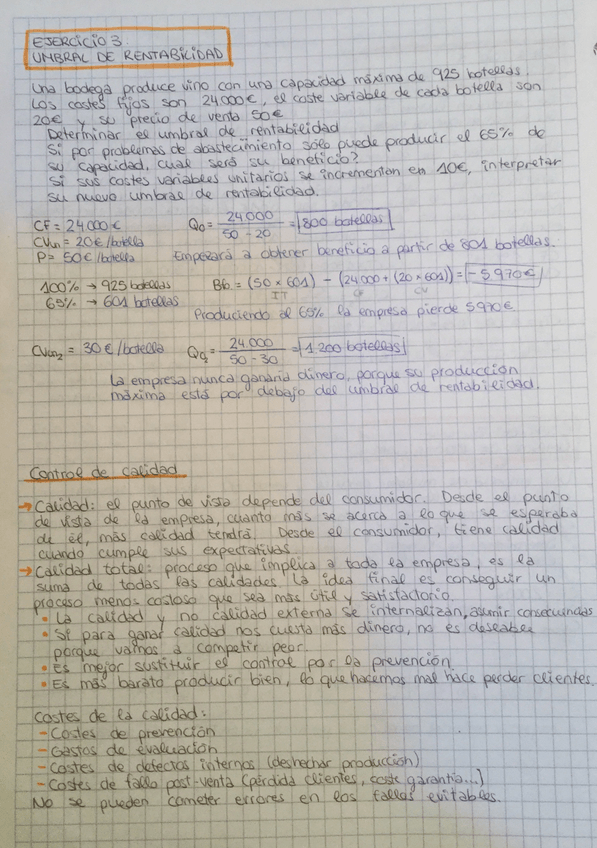 EJERCICIO 3.
UMBRAL DE RENTABILIDAD
Una bodega produce vino con una capacidad máxima de 925 botellas.
Los costes fijos son 24000€, el coste variable de cada botella son
20€ y su precio de venta 50€
Determinar el umbral de rentabilidad
Si por problemas de abastecimiento sólo puede producir el 65% de
su capacidad, cual será su beneficio?
Si sus costes variables unitarios se incrementan en 10€, interpretar
su nuevo umbral de rentabilidad.
CF = 24000€
Q₀ = 24000 / 50 - 20 = 800 botellas
CVun = 20€/botella
P = 50€/botella
Empezará a obtener beneficio a partir de 801 botellas.
100% → 925 botellas
Bº = (50 × 601) - (24000 + (20 × 601)) = -5970€
65% → 601 botellas
IT CF CV
Produciendo al 65% la empresa pierde 5970€
CVun₂ = 30€/botella
Q = 24.000 / 50 - 30 = 1.200 botellas
La empresa nunca ganaría dinero, porque su producción
máxima está por debajo del umbral de rentabilidad.
Control de calidad
→ Calidad: el punto de vista depende del consumidor. Desde el punto
de vista de la empresa, cuanto más se acerca a lo que se esperaba
de él, más calidad tendrá. Desde el consumidor, tiene calidad
cuando cumple sus expectativas.
→ Calidad total: proceso que implica a toda la empresa, es la
suma de todas las calidades. La idea final es conseguir un
proceso menos costoso que sea más útil y satisfactorio.
• La calidad y no calidad externa se internalizan, asumir consecuencias
• Si para ganar calidad nos cuesta más dinero, no es deseable
porque vamos a competir peor.
• Es mejor sustituir el control por la prevención.
• Es más barato producir bien, lo que hacemos mal hace perder clientes.
Costes de la calidad:
- Costes de prevención
- Gastos de evaluación
- Costes de defectos internos (deshechar producción)
- Costes de fallo post-venta (pérdida clientes, coste garantía...)
No se pueden cometer errores en los fallos evitables.